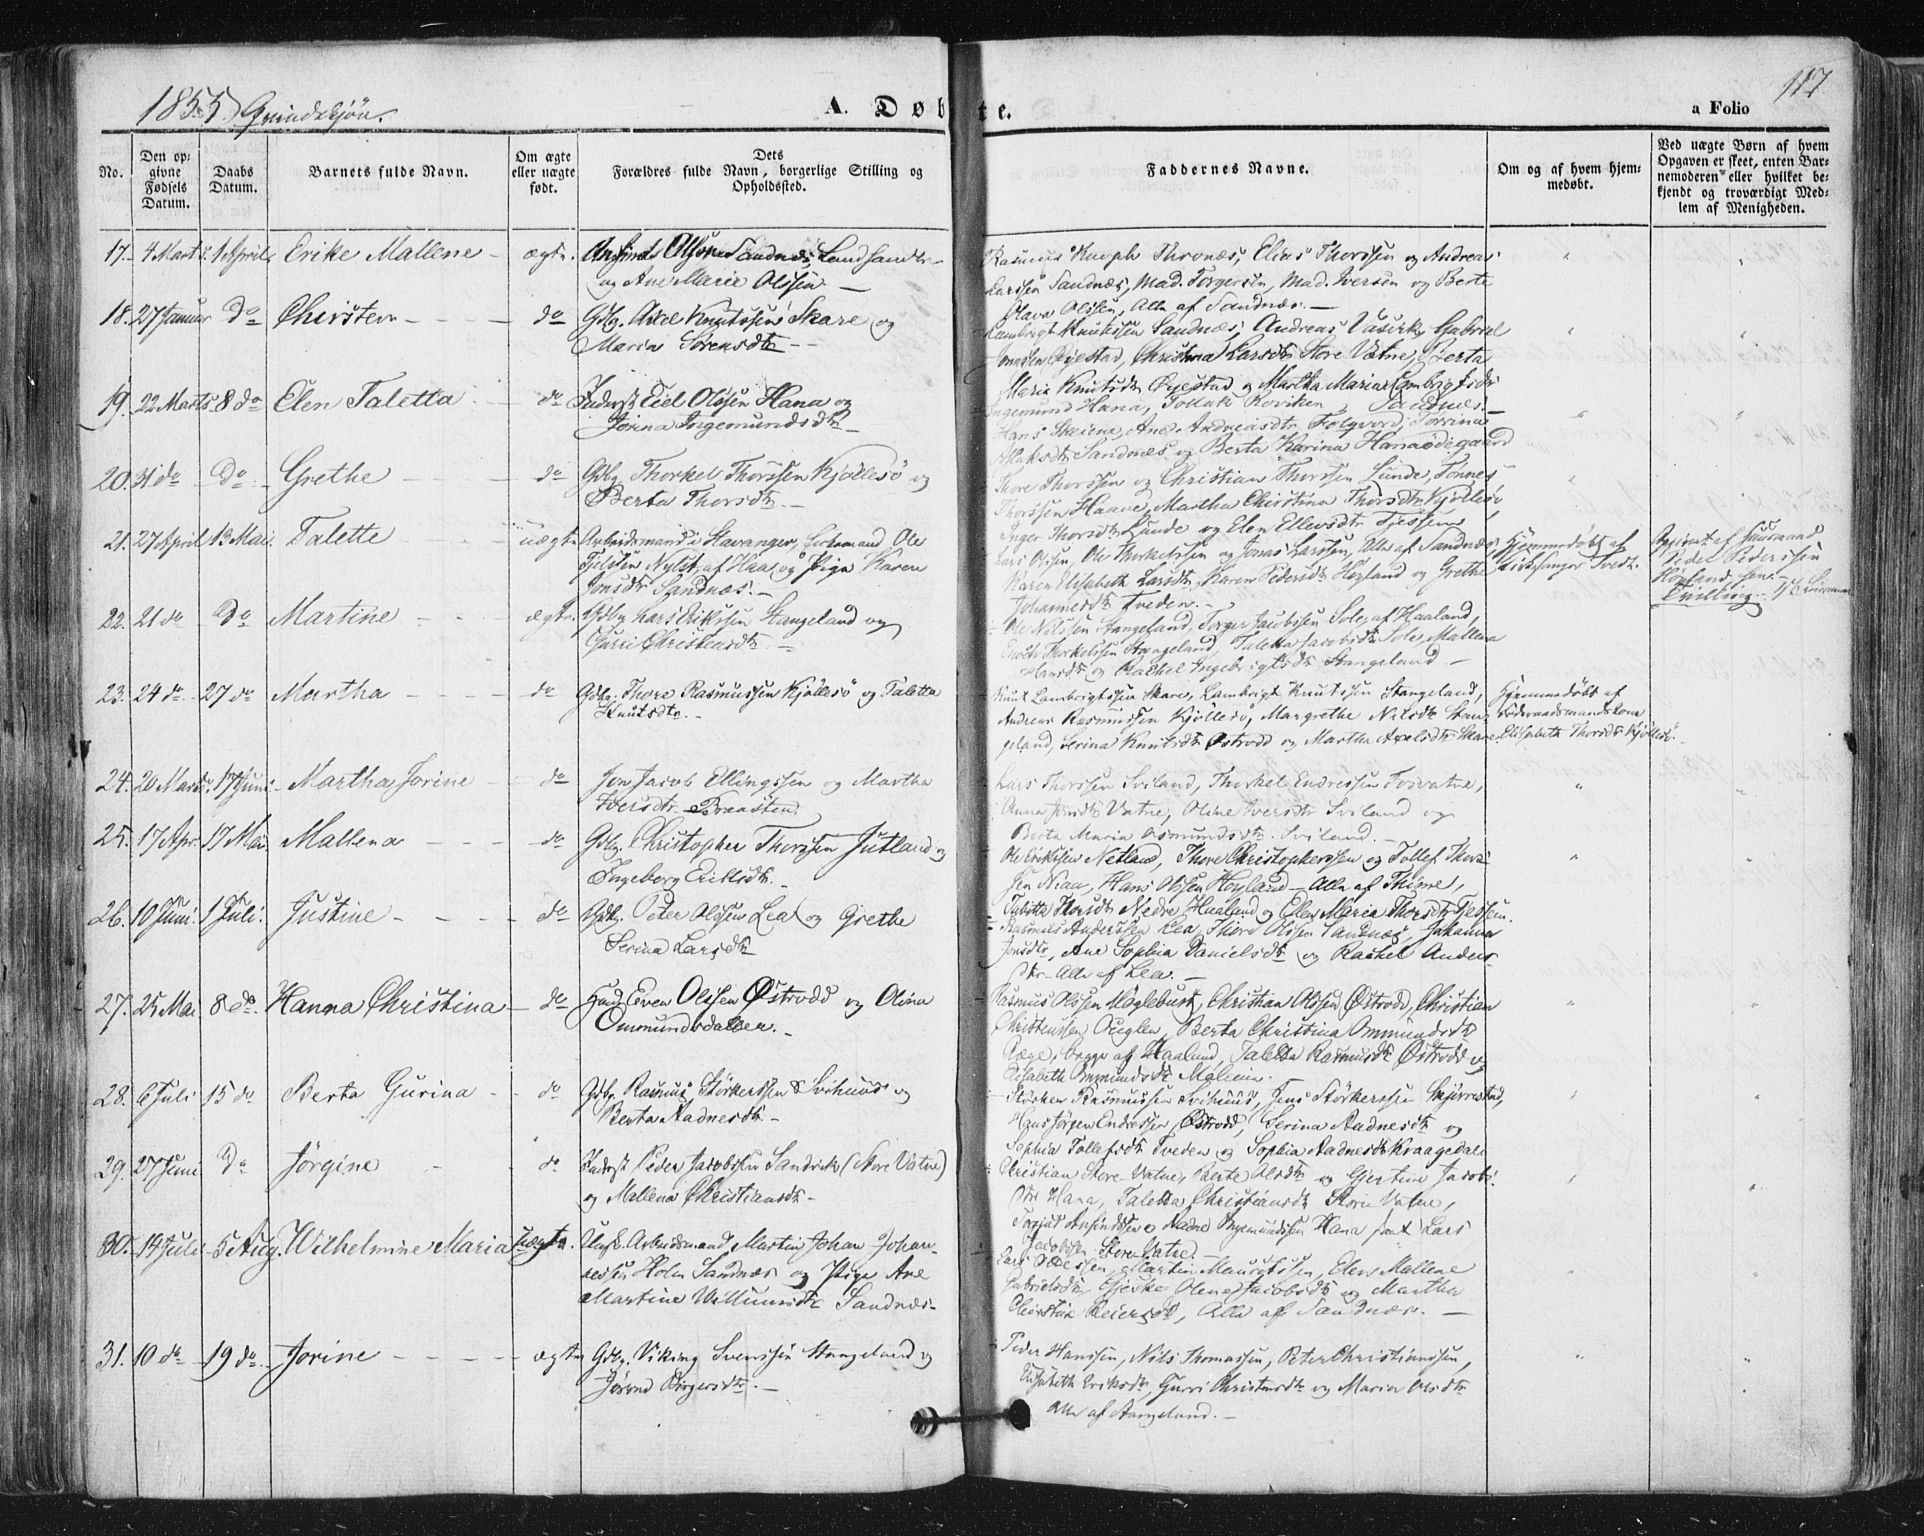 1855 Qvindekjön.
A. Døbte.
a Folio 117
No.
Den opgivne Fødsels Datum.
Daabs Datum.
Barnets fulde Navn.
Om ægte eller uægte født.
Dets Forældres fulde Navn, borgerlige Stilling og Opholdssted.
Faddernes Navne.
Om og af hvem hjemmedøbt.
Ved uægte Børn af hvem Opgaven er skeet, enten Barnemoderen eller hvilket bekjendt og troværdigt Medlem af Menigheden.
17. 4 Marts 1 April Erike Mallene ægte Olsen Sandnæs, Landhandler
og Ane Marie Olsen
Rasmus Knoph Thronæs, Elias Thorssen og Andreas
Larssen Sandnæs, Mad. Torgersen, Mad. Iversen og Berte
Olava Olsen, Alle af Sandnæs.
18. 27 Januar do Christen do Gdbr. Axel Knutssen Skare og
Maria Sørensdtr
Lambrigt Knutssen Sandnæs, Andreas Gabriel
Øyestad, Christina Larsdtr Store Vatne, Berta
Maria Knutsdtr Øyestad og Martha Maria Lambrigtsdtr
Sandnæs
19. 22 Marts 8 do Elen Taletta do Inderst Eiel Olssen Hana og
Jorina Ingemundsdtr
Ingemund Hana, Tollak Roviken,
Hans Skeiene, Ane Andreasdtr Folgvord, Torrina
Sandnæs og Berta Karina Hanaødegaard
20. 31 do do Grethe do Gdbr. Thorkel Thorssen Kjøllesø og
Berta Thorsdtr
Thore Thorssen og Christian Thorssen Lunde, Tønnes
Thorssen Haave, Martha Christina Thorsdtr Kjøllesø
Inger Thorsdtr Lunde og Elen Ellevsdtr Tjessem
21. 27 April 13 Mai Talette uægte Arbeidsmand i Stavanger, Ole
Nylst. af Haa og Pige Karen
Jonsdtr Sandnæs.
Lars Olssen, Ole Thorkelssen og Jonas Larssen, Alle af Sandnæs,
Karen Elisabeth Larsdtr, Karen Pedersdtr Høyland og Grethe
Johannesdtr Tveden.
Hjemmedøbt af
Kirkesanger Tvedt.
Opgivet af Huusmand
Peder Pederssen
Høyland
22. 21 do do Martine ægte Gdbr. Lars Erikssen Stangeland og
Gurri Christensdtr
Ole Nilssen Stangeland, Torger Jacobssen Sole, af Haaland,
Enok Thorkelssen Stangeland, Taletta Jacobsdtr Sole, Mallena
Hansdtr og Rachel Ingebrigtsdtr Stangeland
23. 24 do 27 do Martha do Gdbr. Thore Rasmussen Kjøllesø og Taletta
Knutsdtr.
Knut Lambrigtssen Skare, Lambrigt Knutssen Stangeland,
Andreas Rasmussen Kjøllesø, Margrethe Nilsdtr Stan-
geland, Serina Knutsdtr Østrodd og Martha Axelsdtr Skare.
Hjemmedøbt af
Elisabeth Thorsdtr Kjøllesø.
24. 20 Marts 17 Juni Martha Jorine do Jon Jacob Ellingssen og Martha
Iversdtr Braasten
Lars Thorssen Sviland, Thorkel Endressen Fosvatne,
Anna Jonsdtr Vatne, Oline Iversdtr Sviland og
Berta Maria Asmundsdtr Sviland.
25. 17 Apr. 17 Mai Mallena do Gdbr. Christopher Thorssen Jutland og
Ingeborg Eriksdtr.
Ole Erikssen Netland, Thore Christopherssen og Tollef Thors-
sen Niaa, Hans Olssen Høyland – Alle af Thime,
Taletta Thorsdtr Nedre Haaland og Elen Maria Thorsdtr Tjessem.
26. 10 Juni 1 Juli Justine do Gdbr. Peter Olssen Lea og Grethe
Serina Larsdtr
Rasmus Anderssen Lea, Thore Olssen Sandnæs, Johanna
Jonsdtr, Ane Sophia Danielsdtr og Rachel Anders-
dtr – Alle af Lea.
27. 25 Mai 8 do Hanna Christina do Even Olssen Østrodd og Olina
Ommundsdatter.
Rasmus Olssen Høglebust, Christian Olssen Østrodd, Christian
Christenssen Ouglen, Berta Christina Ommundsdtr
Ræge, begge af Haaland, Taletta Rasmusdtr Østrodd og
Elisabeth Ommundsdtr
28. 6 Juli 15 do Berta Gurina do Gdbr. Rasmus Størkerssen Svihuus og
Berta Aadnesdtr
Størker Rasmussen Svihuus, Jens Størkerssen Skjørrestad,
Hans Jørgen Endressen Østrodd, Serina Aadnesdtr og
Sophia Tollefsdtr Tveden og Sophia Aadnesdtr Kraagedal
29. 27 Juni do Jørgine do Inderst Peder Jacobssen Sandvik (Store Vatne)
og Mallena Christiansdtr
Christian Store Vatne, Berte Olsdtr og Gjertine Jacobs-
dtr Hana, Taletta Christiansdtr Store Vatne,
Torjus Anfindssen og Aadne Ingemundssen Hana samt Lars
Jacobssen Store Vatne.
30. 14 Juli 5 Aug. Wilhelmine Maria uægte Ungk. Arbeidsmand Martin Johan Johan-
nessen Holm Sandnæs og Pige Ane
Martine Willumsdtr Sandnæs
Lars Olssen, Martin Mauritssen, Elen Mallene
Gabrielsdtr, Gjeske Olene Jacobsdtr og Martha
Christine Reiersdtr, Alle af Sandnæs.
31. 10 do 19 do Jorine ægte Gdbr. Viking Svenssen Stangeland og
Jørend Birgersdtr.
Peder Hanssen, Nils Thomassen, Peter Christianssen,
Elisabeth Eriksdtr, Gurri Christensdtr og Maria Olsdtr
Alle af Stangeland.